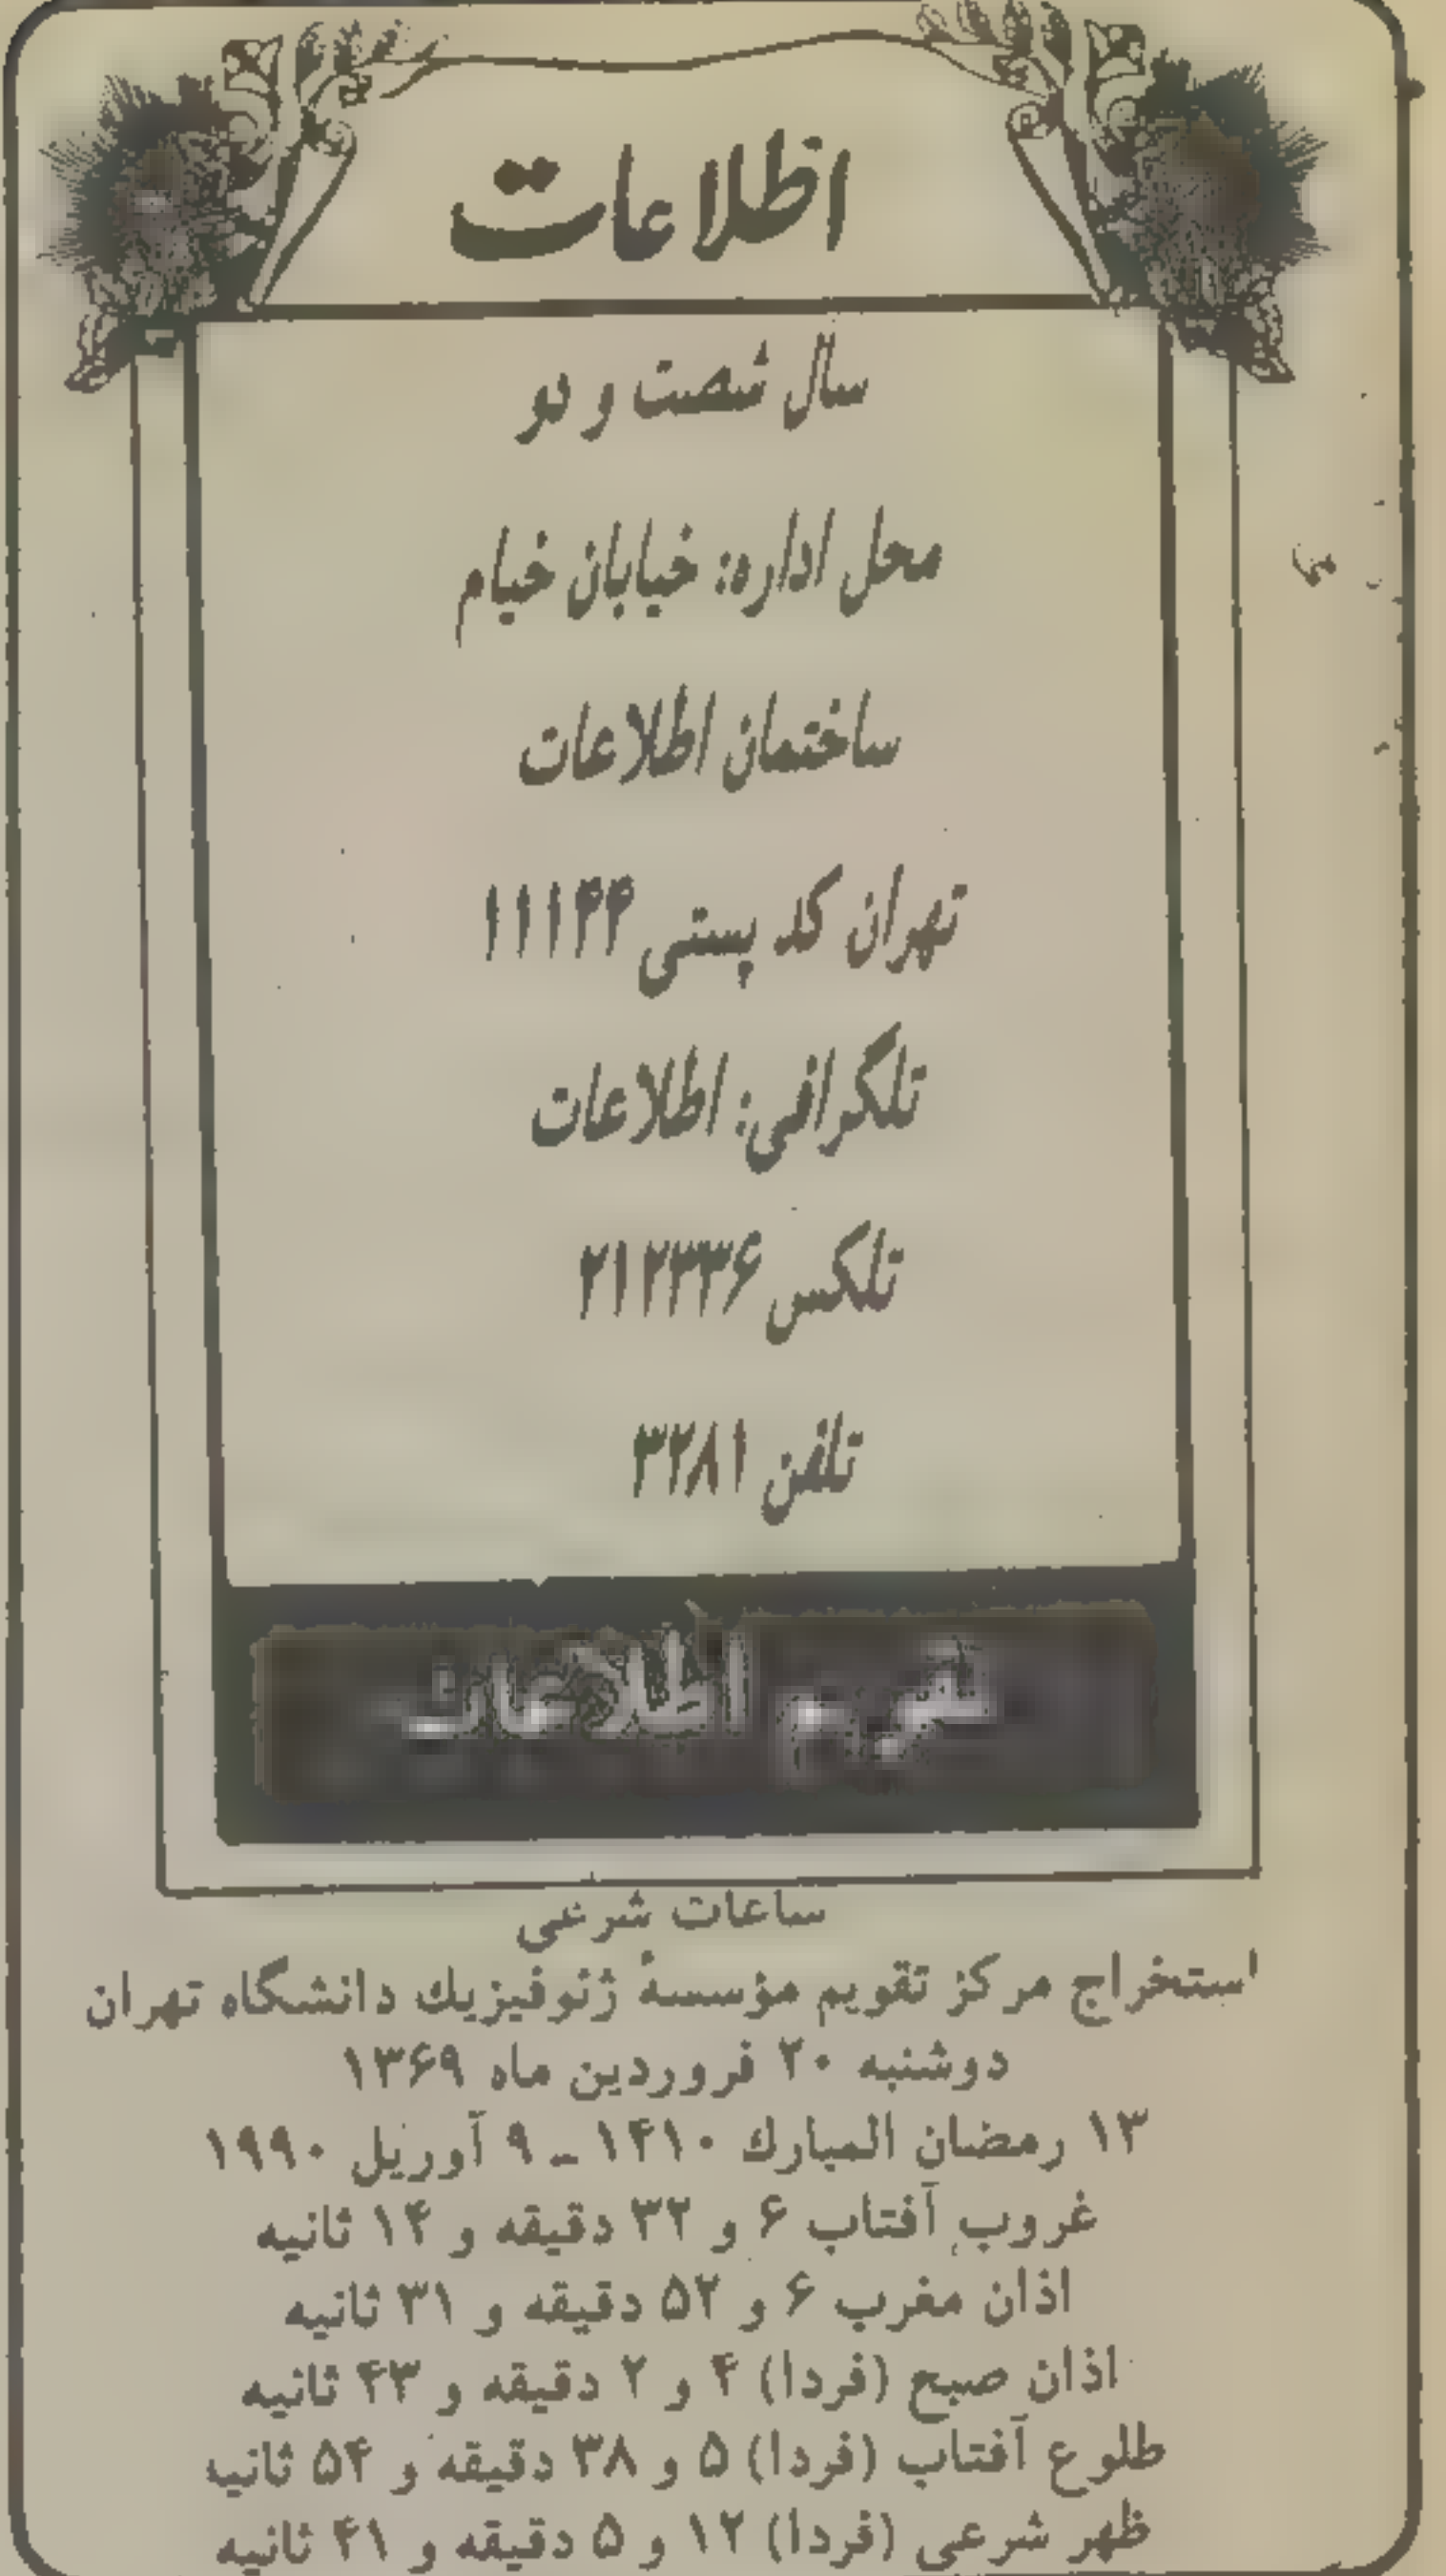 اطلاعات
سال شصت و دو
محل اداره: خیابان خیام
ساختمان اطلاعات
تهران کد پستی ۱۱۱۴۴
تلگرافی: اطلاعات
تلکس ۲۱۲۳۳۶
تلفن ۳۲۸۱
تقویم اطلاعات
ساعات شرعی
استخراج مرکز تقویم مؤسسهٔ ژئوفیزیك دانشگاه تهران
دوشنبه ۲۰ فروردین ماه ۱۳۶۹
۱۳ رمضان المبارك ۱۴۱۰ ـ ۹ آوریل ۱۹۹۰
غروب آفتاب ۶ و ۳۲ دقیقه و ۱۴ ثانیه
اذان مغرب ۶ و ۵۲ دقیقه و ۳۱ ثانیه
اذان صبح (فردا) ۴ و ۲ دقیقه و ۴۳ ثانیه
طلوع آفتاب (فردا) ۵ و ۳۸ دقیقه و ۵۴ ثانیه
ظهر شرعی (فردا) ۱۲ و ۵ دقیقه و ۴۱ ثانیه